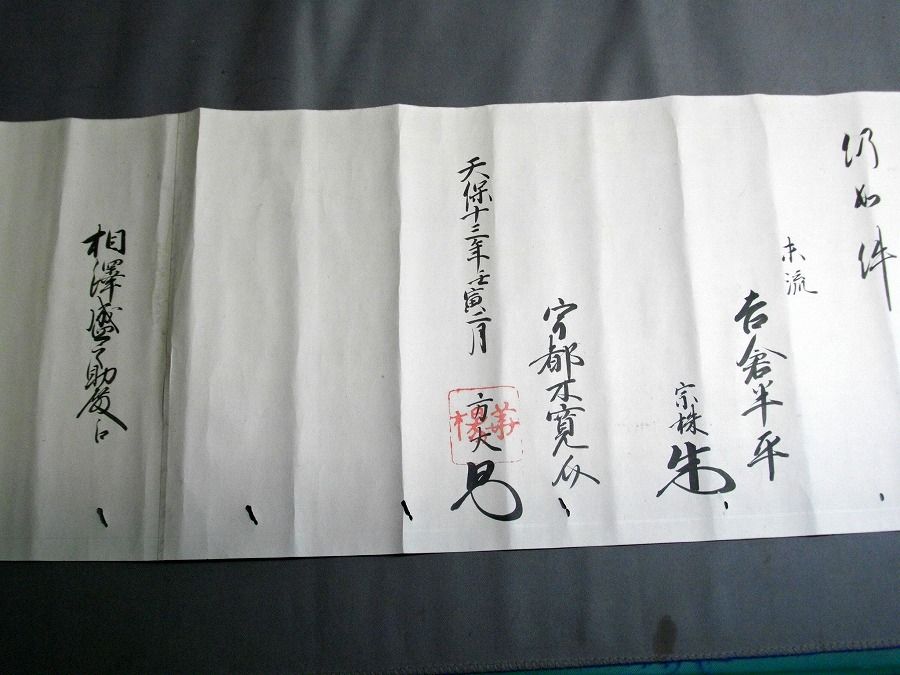 仍如件
末流
吉倉半平
宗株
宇都木寛
天保十三年壬寅二月
方大
相澤盛之助殿